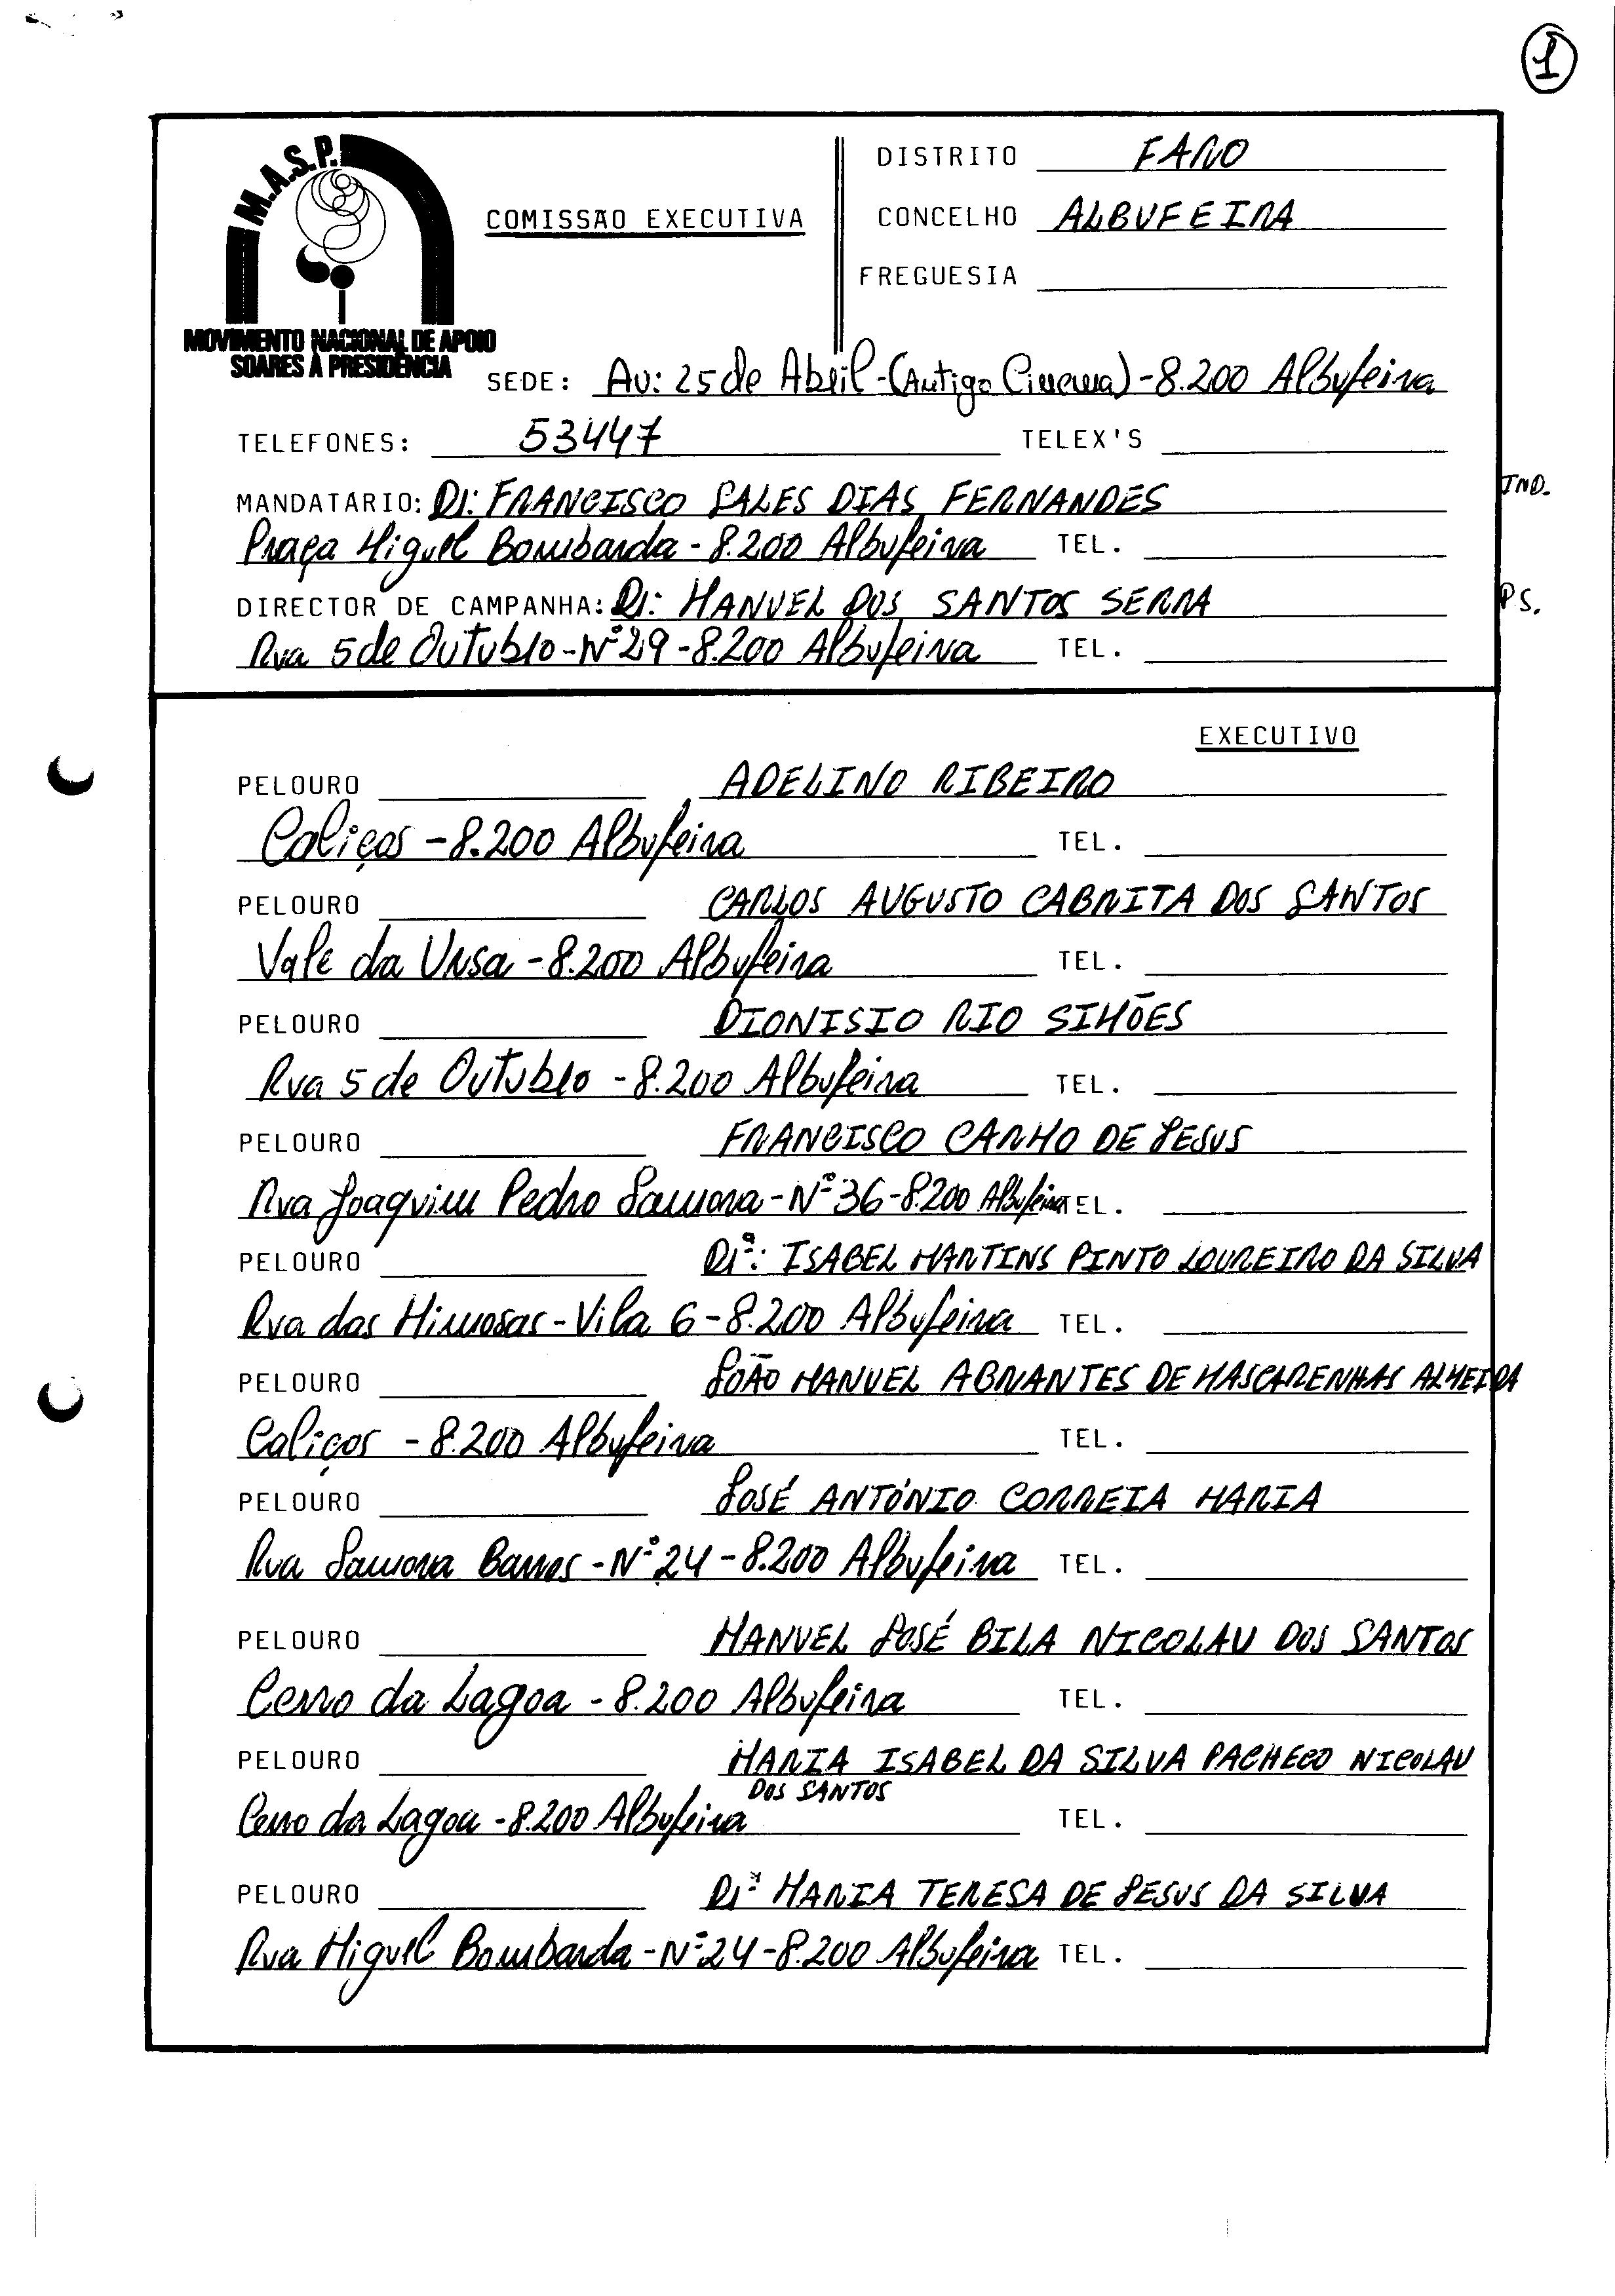 1
M.A.S.P.
MOVIMENTO NACIONAL DE APOIO
SOARES À PRESIDÊNCIA
COMISSAO EXECUTIVA
DISTRITO FARO
CONCELHO ALBUFEIRA
FREGUESIA
SEDE: Av: 25 de Abril - (Antigo Cinema) - 8.200 Albufeira
TELEFONES: 53447 TELEX'S
MANDATARIO: Dr: FRANCISCO SALES DIAS FERNANDES IND.
Praça Miguel Bombarda - 8.200 Albufeira TEL.
DIRECTOR DE CAMPANHA: Dr: MANUEL DOS SANTOS SERRA P.S.
Rua 5 de Outubro - Nº 29 - 8.200 Albufeira TEL.
EXECUTIVO
PELOURO ADELINO RIBEIRO
Caliços - 8.200 Albufeira TEL.
PELOURO CARLOS AUGUSTO CABRITA DOS SANTOS
Vale da Ursa - 8.200 Albufeira TEL.
PELOURO DIONISIO RIO SIMÕES
Rua 5 de Outubro - 8.200 Albufeira TEL.
PELOURO FRANCISCO CARMO DE JESUS
Rua Joaquim Pedro Samora - Nº 36 - 8.200 Albufeira TEL.
PELOURO Drª: ISABEL MARTINS PINTO LOUREIRO DA SILVA
Rua das Mimosas - Vila 6 - 8.200 Albufeira TEL.
PELOURO JOÃO MANUEL ABRANTES DE MASCARENHAS ALMEIDA
Caliços - 8.200 Albufeira TEL.
PELOURO JOSÉ ANTÓNIO CORREIA MARIA
Rua Samora Barros - Nº 24 - 8.200 Albufeira TEL.
PELOURO MANUEL JOSÉ BILA NICOLAU DOS SANTOS
Cerro da Lagoa - 8.200 Albufeira TEL.
PELOURO MARIA ISABEL DA SILVA PACHECO NICOLAU
DOS SANTOS
Cerro da Lagoa - 8.200 Albufeira TEL.
PELOURO Drª MARIA TERESA DE JESUS DA SILVA
Rua Miguel Bombarda - Nº 24 - 8.200 Albufeira TEL.